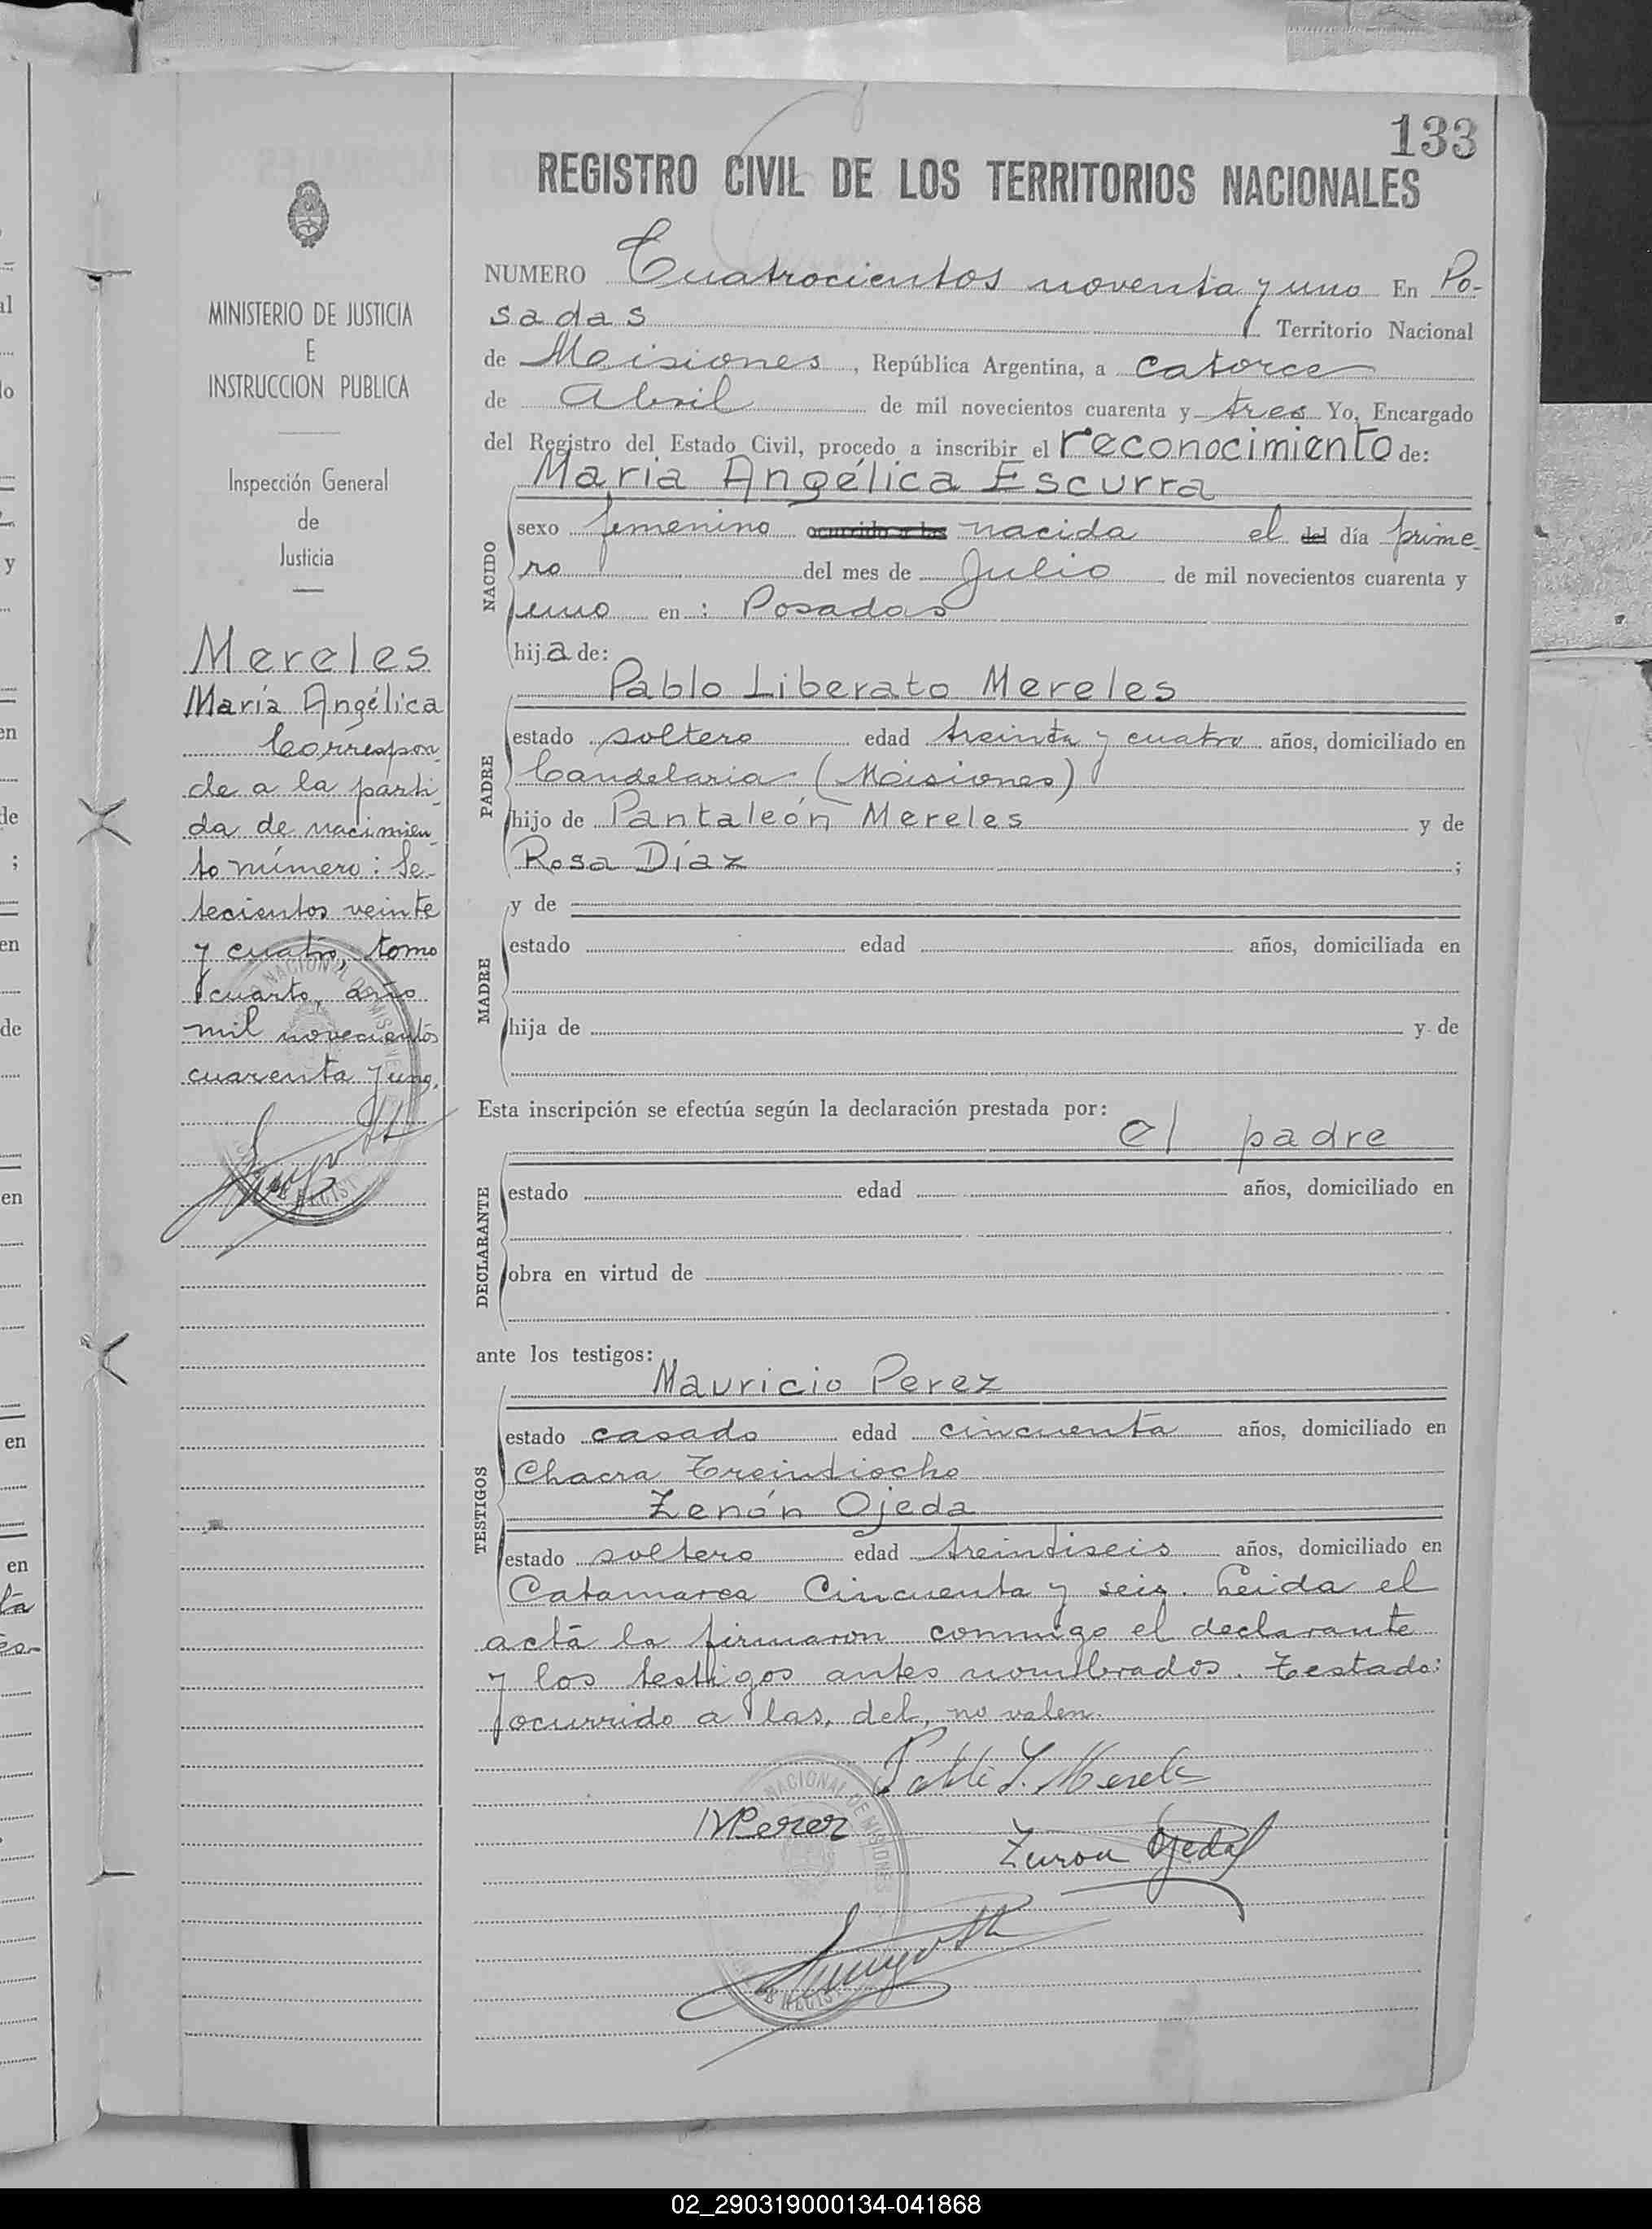 133
REGISTRO CIVIL DE LOS TERRITORIOS NACIONALES
MINISTERIO DE JUSTICIA
E
INSTRUCCION PUBLICA
Inspección General
de
Justicia
Mereles
María Angélica
Correspon-
de a la parti-
da de nacimien-
to número: Se-
tecientos veinte
y cuatro, tomo
cuarto, año
mil novecientos
cuarenta y uno.
NUMERO Cuatrocientos noventa y uno En Po-
sadas Territorio Nacional
de Misiones, República Argentina, a catorce
de Abril de mil novecientos cuarenta y tres Yo, Encargado
del Registro del Estado Civil, procedo a inscribir el reconocimiento de:
Maria Angélica Escurra
NACIDO
sexo femenino ocurrido a las nacida el del día prime-
ro del mes de Julio de mil novecientos cuarenta y
uno en : Posadas
hija de:
Pablo Liberato Mereles
PADRE
estado soltero edad treinta y cuatro años, domiciliado en
Candelaria (Misiones)
hijo de Pantaleón Mereles y de
Rosa Díaz ;
y de
MADRE
estado edad años, domiciliada en
hija de y de
Esta inscripción se efectúa según la declaración prestada por:
el padre
DECLARANTE
estado edad años, domiciliado en
obra en virtud de
ante los testigos:
Mauricio Perez
TESTIGOS
estado casado edad cincuenta años, domiciliado en
Chacra Treintiocho
Zenón Ojeda
estado soltero edad treintiseis años, domiciliado en
Catamarca Cincuenta y seis. Leida el
acta la firmaron conmigo el declarante
y los testigos antes nombrados. Testado:
ocurrido a las, del, no valen.
Pablo L. Mereles
MPerez
Zenon Ojeda
NACIONAL DE MISIONES
02_290319000134-041868